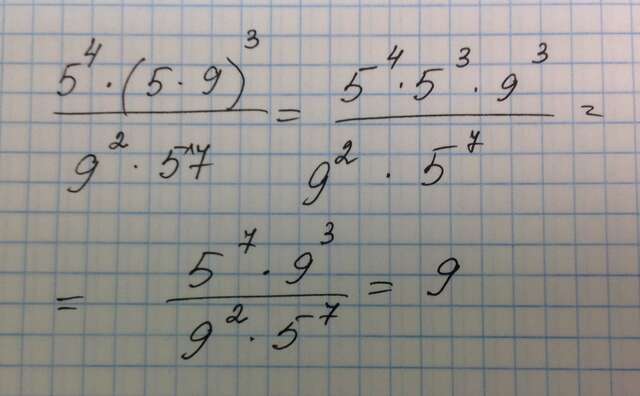 5⁴ · (5 · 9)³ / 9² · 5^7 = 5⁴ · 5³ · 9³ / 9² · 5⁷ =
= 5⁷ · 9³ / 9² · 5⁷ = 9